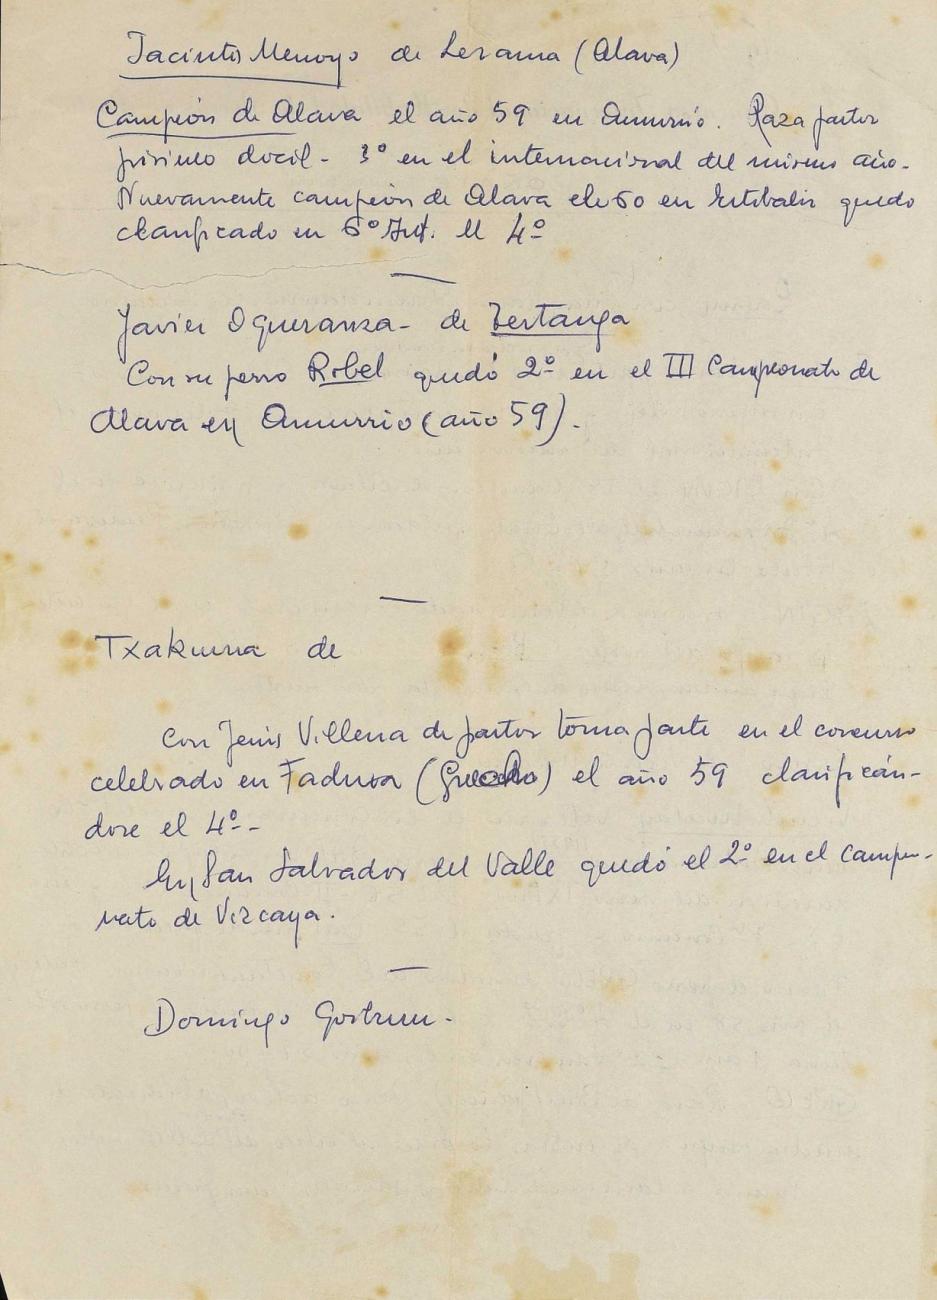 Jacinto Menoyo de Lezama (Alava)
Campeón de Alava el año 59 en Amurrio. Raza pastor
pirineo docil - 3º en el internacional del mismo año.
Nuevamente campeón de Alava el 60 en Estibaliz quedo
clasificado en 6º Int. el 4º
Javier Oqueranza - de Tertanga
Con su perro Robel quedó 2º en el III Campeonato de
Alava en Amurrio (año 59).
Txakurra de
Con Jesús Villena de pastor toma parte en el concurso
celebrado en Fadura (Guecho) el año 59 clasificán-
dose el 4º -
En San Salvador del Valle quedó el 2º en el campeo-
nato de Vizcaya.
Domingo